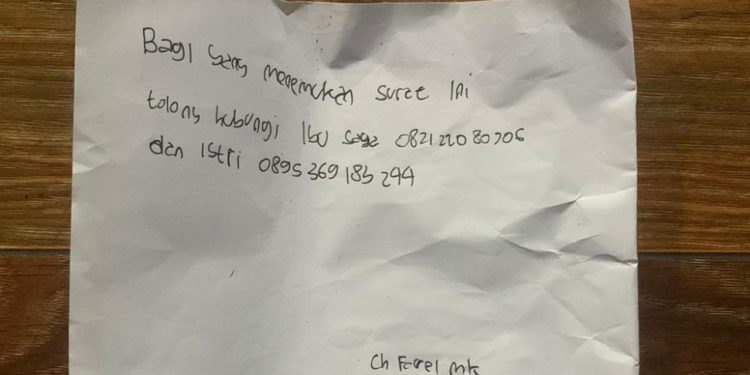 Bagi yang menemukan surat Ini
tolong hubungi Ibu saya 082122080706
dan Istri 0895369183244